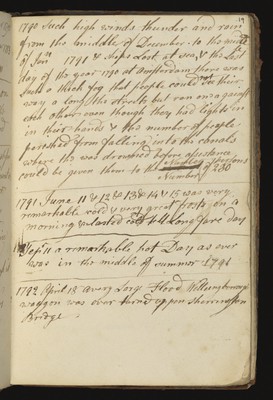 19
1790 Such high winds thunder and rain
from the middle of December to the midd
of Jan 1791 & ships lost at sea & the last
day of the year 1790 at Amsterdam there was
Such a thick fog that people could not see their
way along the streets but ran one against
each other even though they had lights in
in their hands & this number of people
perished from falling into the canals
where they was drowned before assistance
could be given them to the Number of Persons
Number of 230
1791 June 11 & 12 & 13 & 14 & 15 was very
remarkable cold & very great frosts on a
morning & lasted cold till Long fare day
Sept 11 a remarkable hot Day as ever
was in the middle of summer 1791
1792 April 13 a very Larg Flood Wellingborough
waggon was over turned uppon Sherrington
Bridge